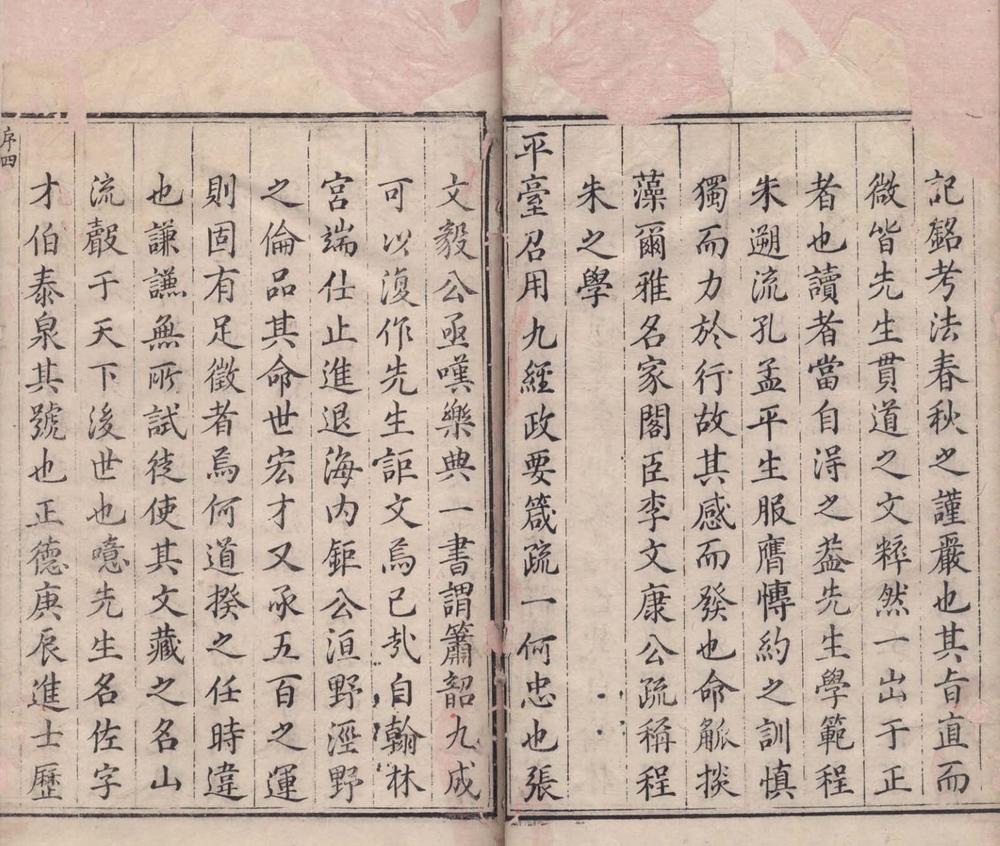 記銘考法春秋之謹嚴也其旨直而
微皆先生貫道之文粹然一出于正
者也讀者當自淂之葢先生學範程
朱遡流孔孟平生服膺慱約之訓慎
獨而力於行故其感而發也命觚掞
藻爾雅名家閣臣李文康公疏稱程
朱之學
平臺召用九經政要箴疏一何忠也張
文毅公亟嘆樂典一書謂簫韶九成
可以復作先生詎文焉已㢤自翰林
宮端仕止進退海内鉅公洹野涇野
之倫品其命世宏才又承五百之運
則固有足徵者焉何道揆之任時違
也謙謙無所試徒使其文藏之名山
流聲于天下後世也噫先生名佐字
才伯泰泉其號也正德庚辰進士歷
序四